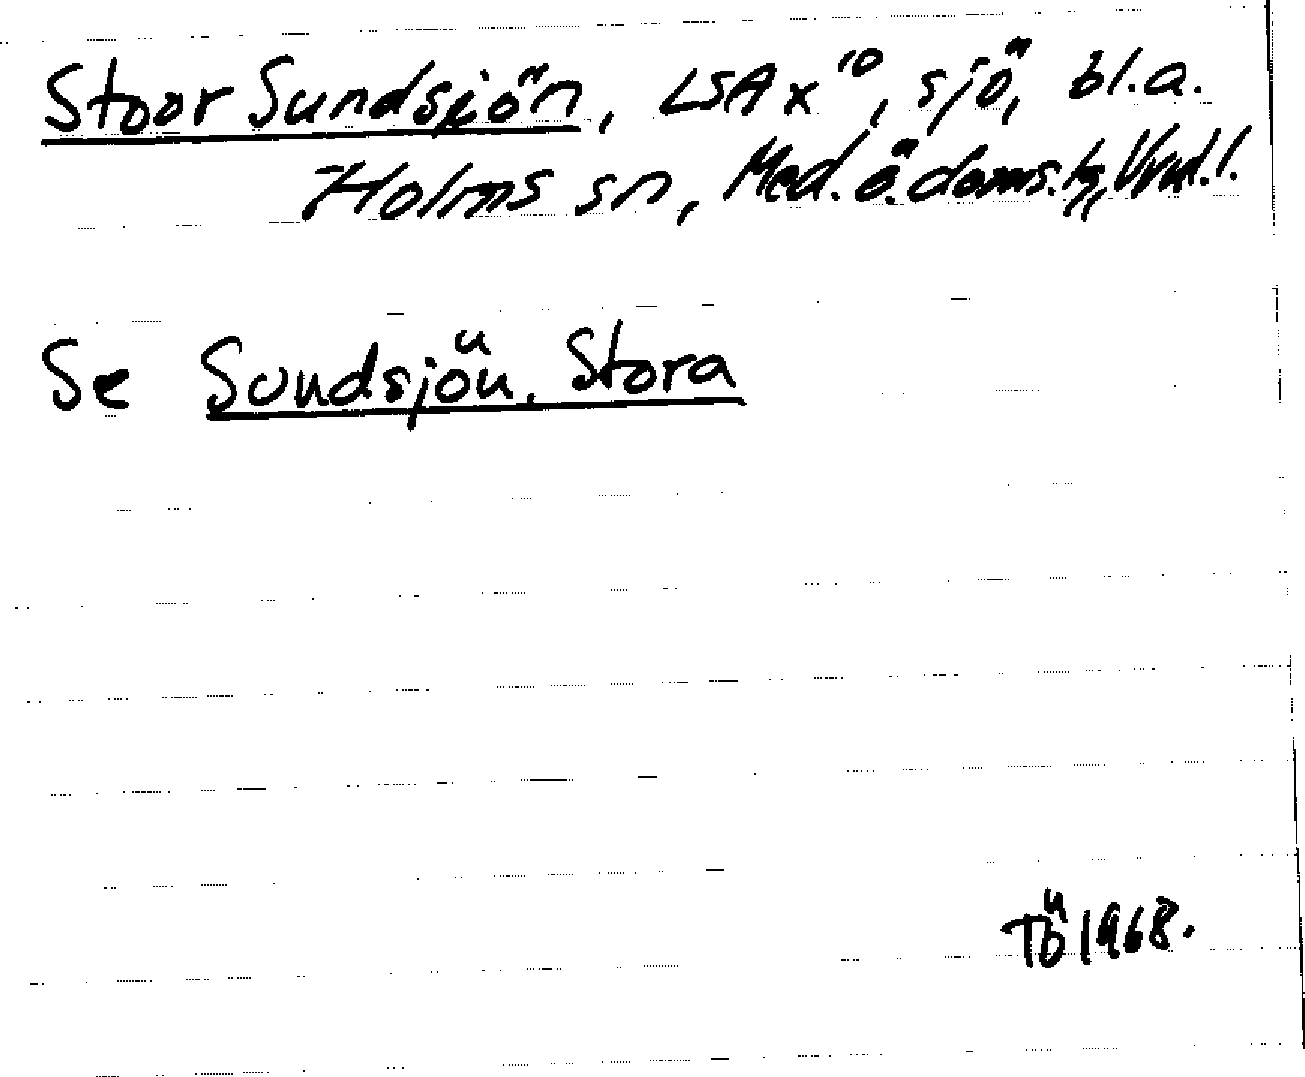 Stoor Sundsjön, LSA x¹⁰, sjö, bl.a.
Holms sn, Med. ö. doms.hg, Vrnl.l.
Se Sundsjön, Stora
TÖ 1968.